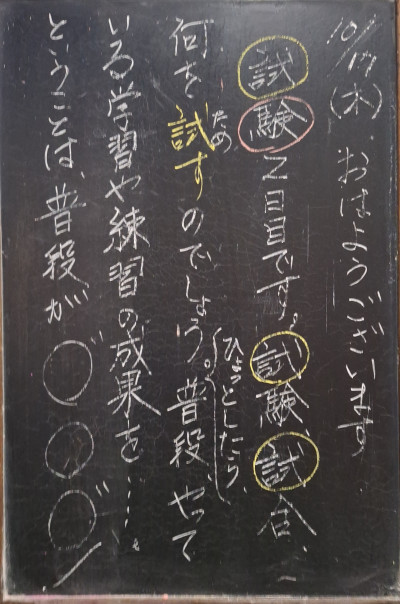 10/17(木) おはようございます
試験2日目です。試験、試合、
ひょっとしたら、
何を試すのでしょう。普段、やって
ため
いる学習や練習の成果を……。
ということは、普段が○○○